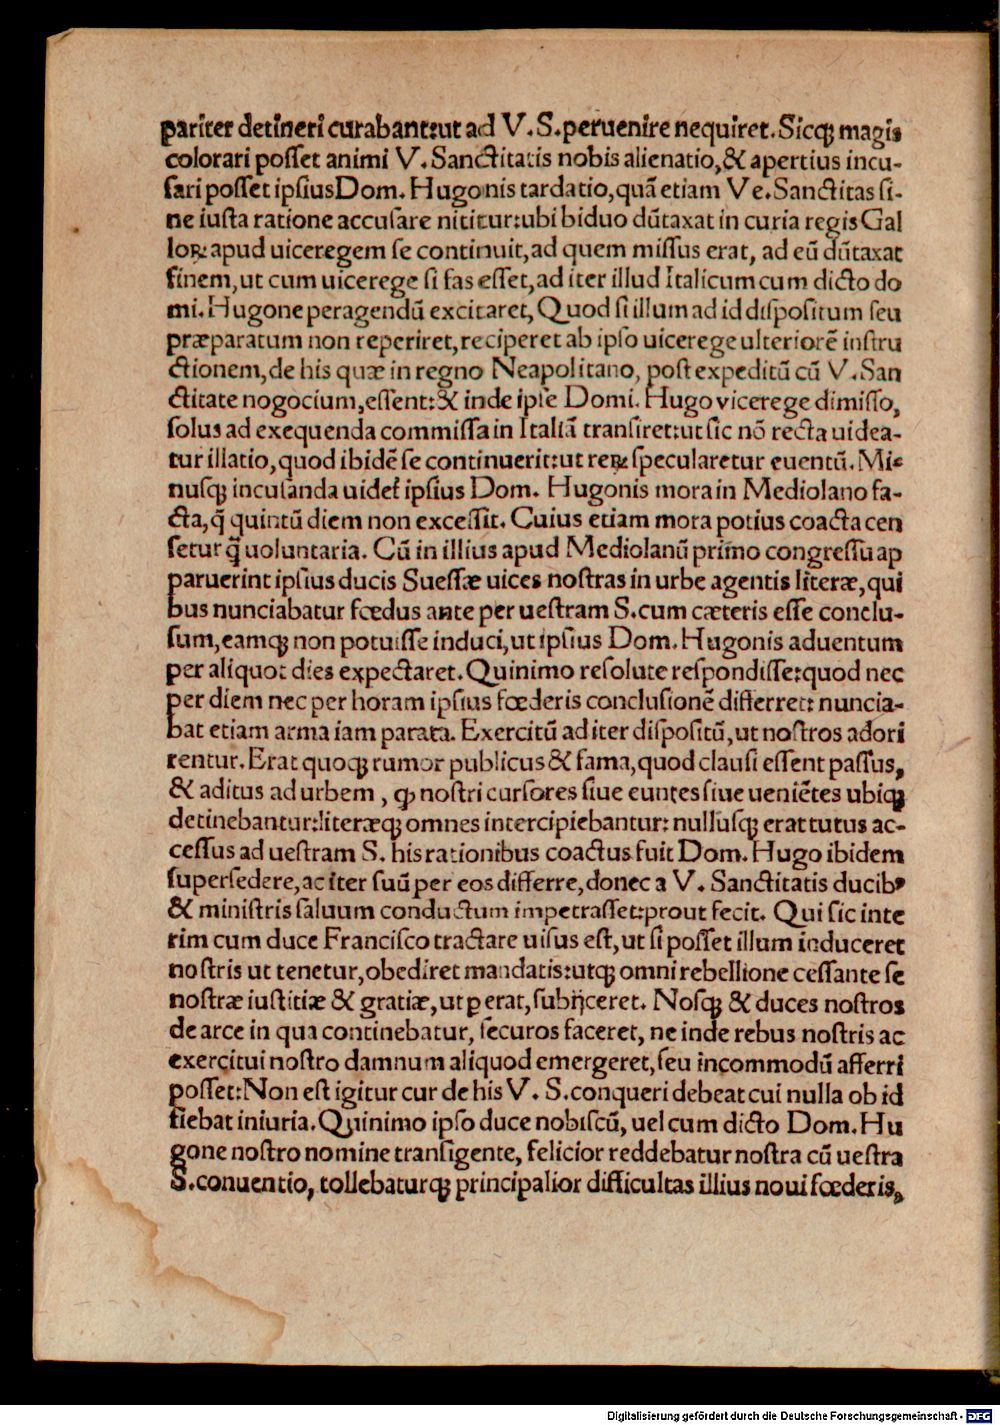 pariter detineri curabant:ut ad V.S.peruenire nequiret.Sicqꝫ magis
colorari posset animi V.Sanctitatis nobis alienatio,& apertius incu-
sari posset ipsius Dom. Hugonis tardatio,quā etiam Ve.Sanctitas si-
ne iusta ratione accusare nititur:ubi biduo dūtaxat in curia regis Gal
loꝝ apud uiceregem se continuit,ad quem missus erat, ad eū dūtaxat
finem,ut cum uicerege si fas esset,ad iter illud Italicum cum dicto do
mi.Hugone peragendū excitaret,Quod si illum ad id dispositum seu
præparatum non reperiret,reciperet ab ipso uicerege ulteriorē instru
ctionem,de his quæ in regno Neapolitano, post expeditū cū V.San
ctitate nogocium,essent:& inde ipse Domi. Hugo vicerege dimisso,
solus ad exequenda commissa in Italiā transiret:ut sic nō recta uidea-
tur illatio,quod ibidē se continuerit:ut reꝝ specularetur euentū.Mi-
nusqꝫ inculanda uidet ipsius Dom. Hugonis mora in Mediolano fa-
cta,q̄ quintū diem non excessit. Cuius etiam mora potius coacta cen
setur q̄ uoluntaria. Cū in illius apud Mediolanū primo congressu ap
paruerint ipsius ducis Suessæ uices nostras in urbe agentis literæ,qui
bus nunciabatur fœdus ante per uestram S.cum cæteris esse conclu-
sum,eamqꝫ non potuisse induci,ut ipsius Dom.Hugonis aduentum
per aliquot dies expectaret.Quinimo resolute respondisse:quod nec
per diem nec per horam ipsius fœderis conclusionē differret: nuncia-
bat etiam arma iam parata. Exercitū ad iter dispositū,ut nostros adori
rentur.Erat quoqꝫ rumor publicus & fama,quod clausi essent passus,
& aditus ad urbem , ꝙ nostri cursores siue euntes siue ueniētes ubiqꝫ
detinebantur:literæqꝫ omnes intercipiebantur: nullusqꝫ erat tutus ac-
cessus ad uestram S. his rationibus coactus fuit Dom. Hugo ibidem
supersedere,ac iter suū per eos differre,donec a V. Sanctitatis ducibꝰ
& ministris saluum conductum impetrasset:prout fecit. Qui sic inte
rim cum duce Francisco tractare uisus est,ut si posset illum induceret
nostris ut tenetur,obediret mandatis:utqꝫ omni rebellione cessante se
nostræ iustitiæ & gratiæ,ut ꝑerat,subijceret. Nosqꝫ & duces nostros
de arce in qua continebatur, securos faceret, ne inde rebus nostris ac
exercitui nostro damnum aliquod emergeret,seu incommodū afferri
posset:Non est igitur cur de his V. S.conqueri debeat cui nulla ob id
fiebat iniuria.Quinimo ipso duce nobiscū, uel cum dicto Dom.Hu
gone nostro nomine transigente, felicior reddebatur nostra cū uestra
S.conuentio, tollebaturqꝫ principalior difficultas illius noui fœderis,
Digitalisierung gefördert durch die Deutsche Forschungsgemeinschaft - DFG